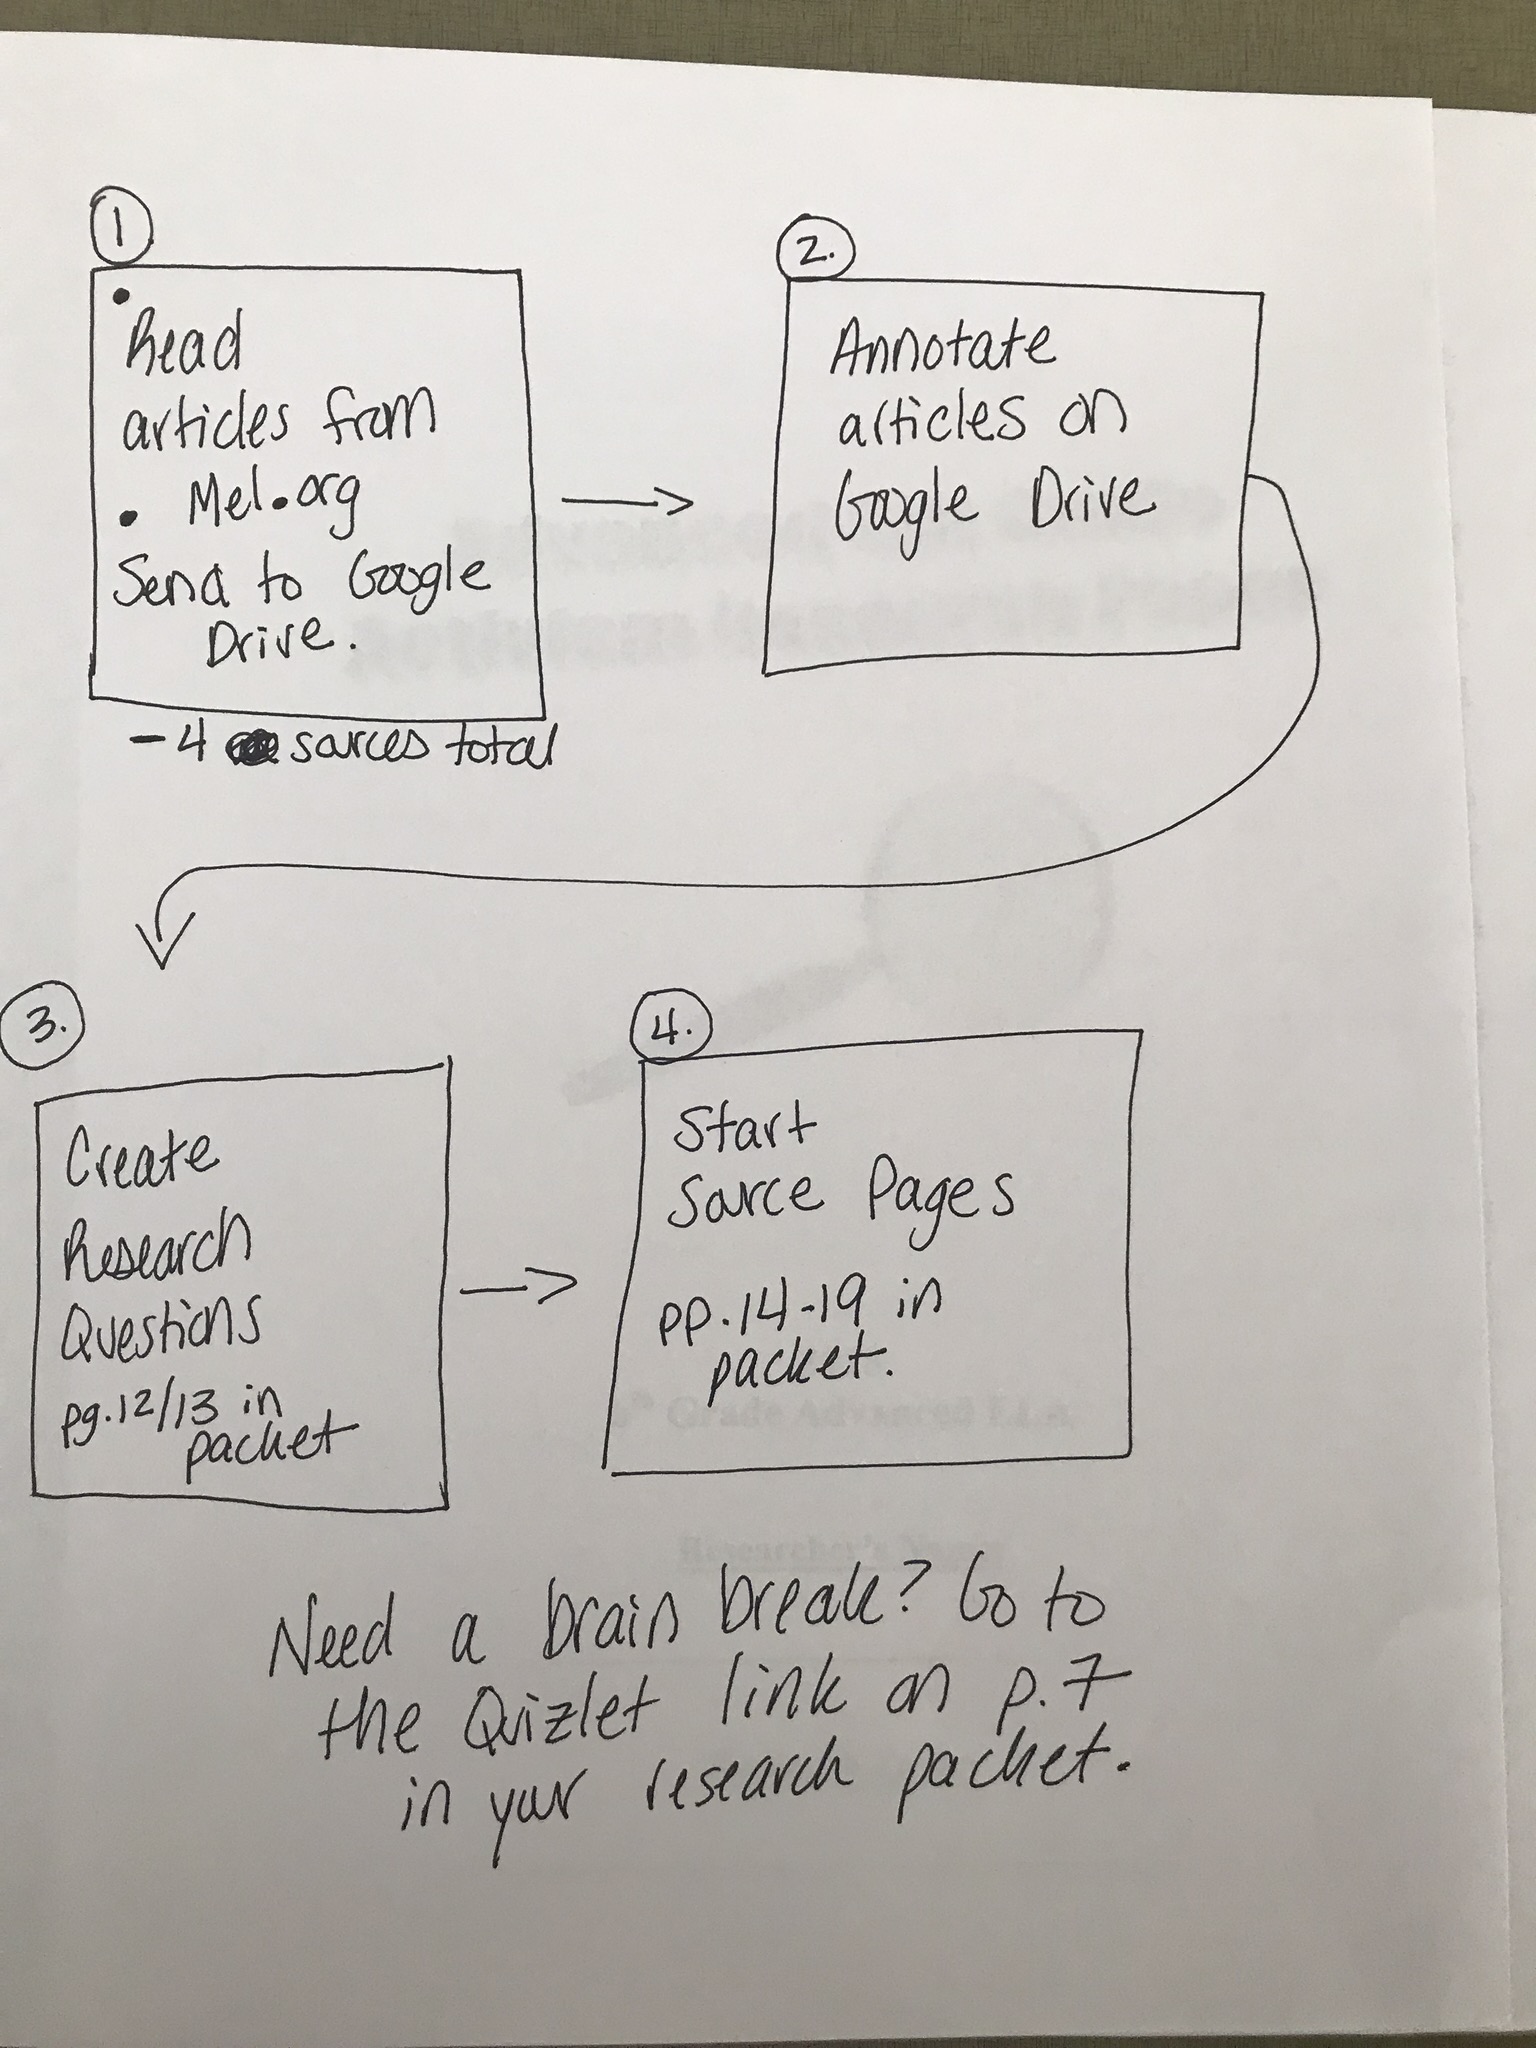 1
• Read
articles from
• Mel.org
Send to Google
Drive.
- 4 sources total
2.
Annotate
articles on
Google Drive
3.
Create
Research
Questions
pg.12/13 in
packet
4.
Start
Source Pages
pp.14-19 in
packet.
Grade Advanced ELA
Researcher's Name
Need a brain break? Go to
the Quizlet link on p.7
in your research packet.